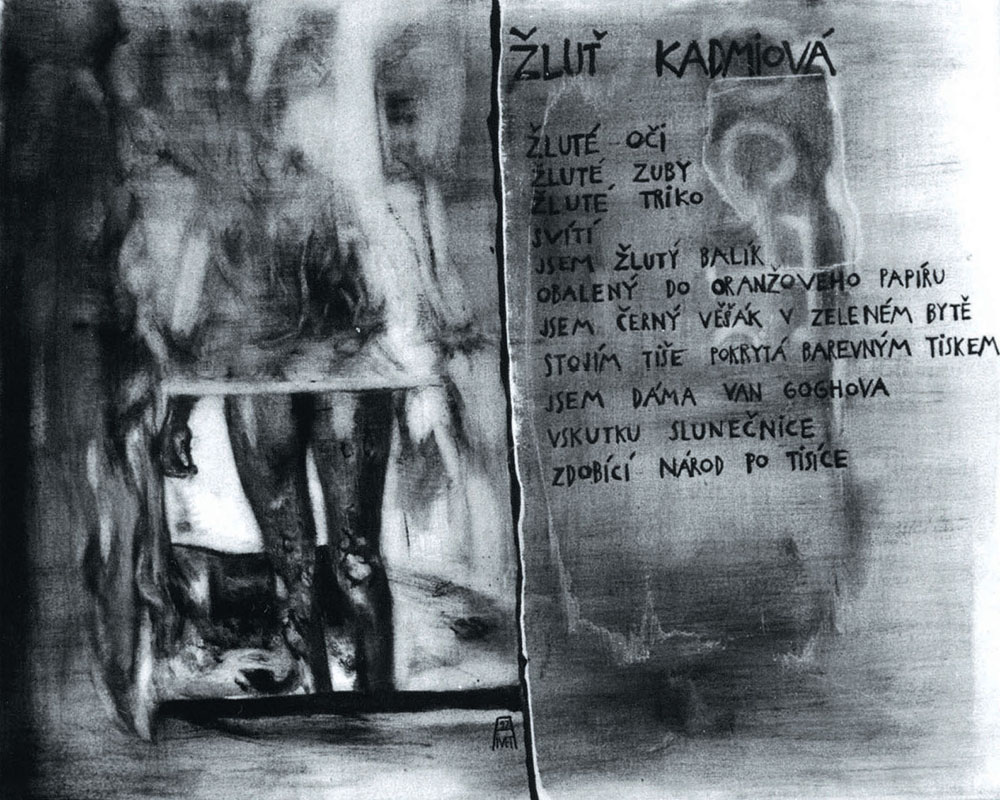 ŽLUŤ KADMIOVÁ
ŽLUTÉ OČI
ŽLUTÉ ZUBY
ŽLUTÉ TRIKO
SVÍTÍ
JSEM ŽLUTÝ BALÍK
OBALENÝ DO ORANŽOVÉHO PAPÍRU
JSEM ČERNÝ VĚŠÁK V ZELENÉM BYTĚ
STOJÍM TIŠE POKRYTÁ BAREVNÝM TISKEM
JSEM DÁMA VAN GOGHOVA
VSKUTKU SLUNEČNICE
ZDOBÍCÍ NÁROD PO TISÍCE